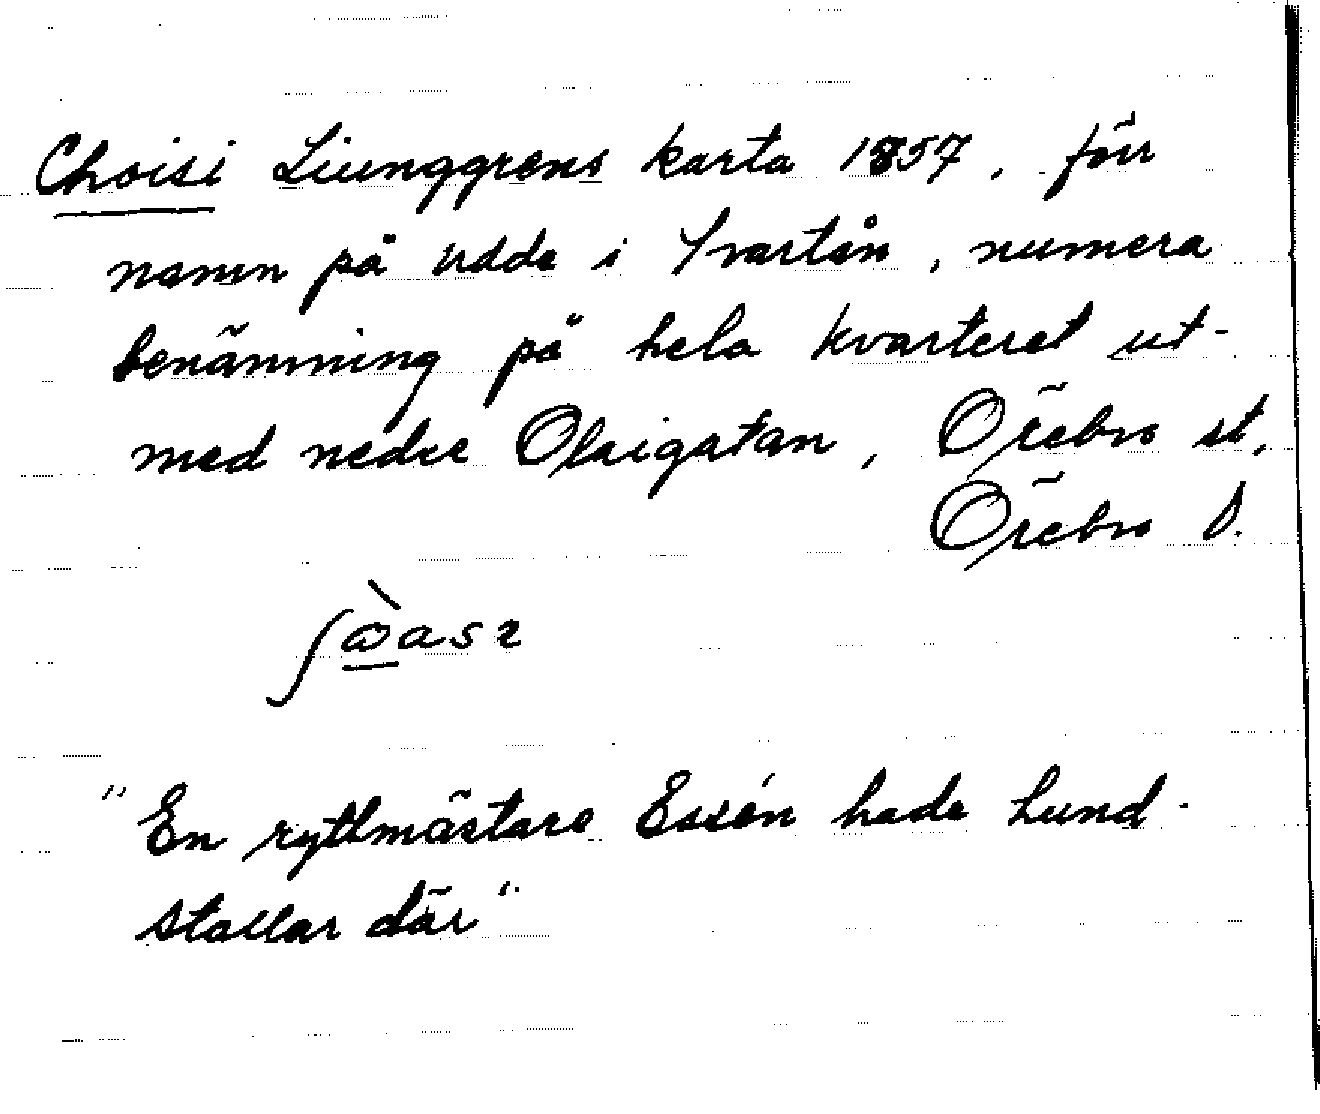 Choisi Liunggrens karta 1857, förr
namn på udde i Svartån, numera
benämning på hela kvarteret ut-
med nedre Olaigatan, Örebro st,
Örebro l.
"En ryttmästare Essén hade hund-
stallar där"